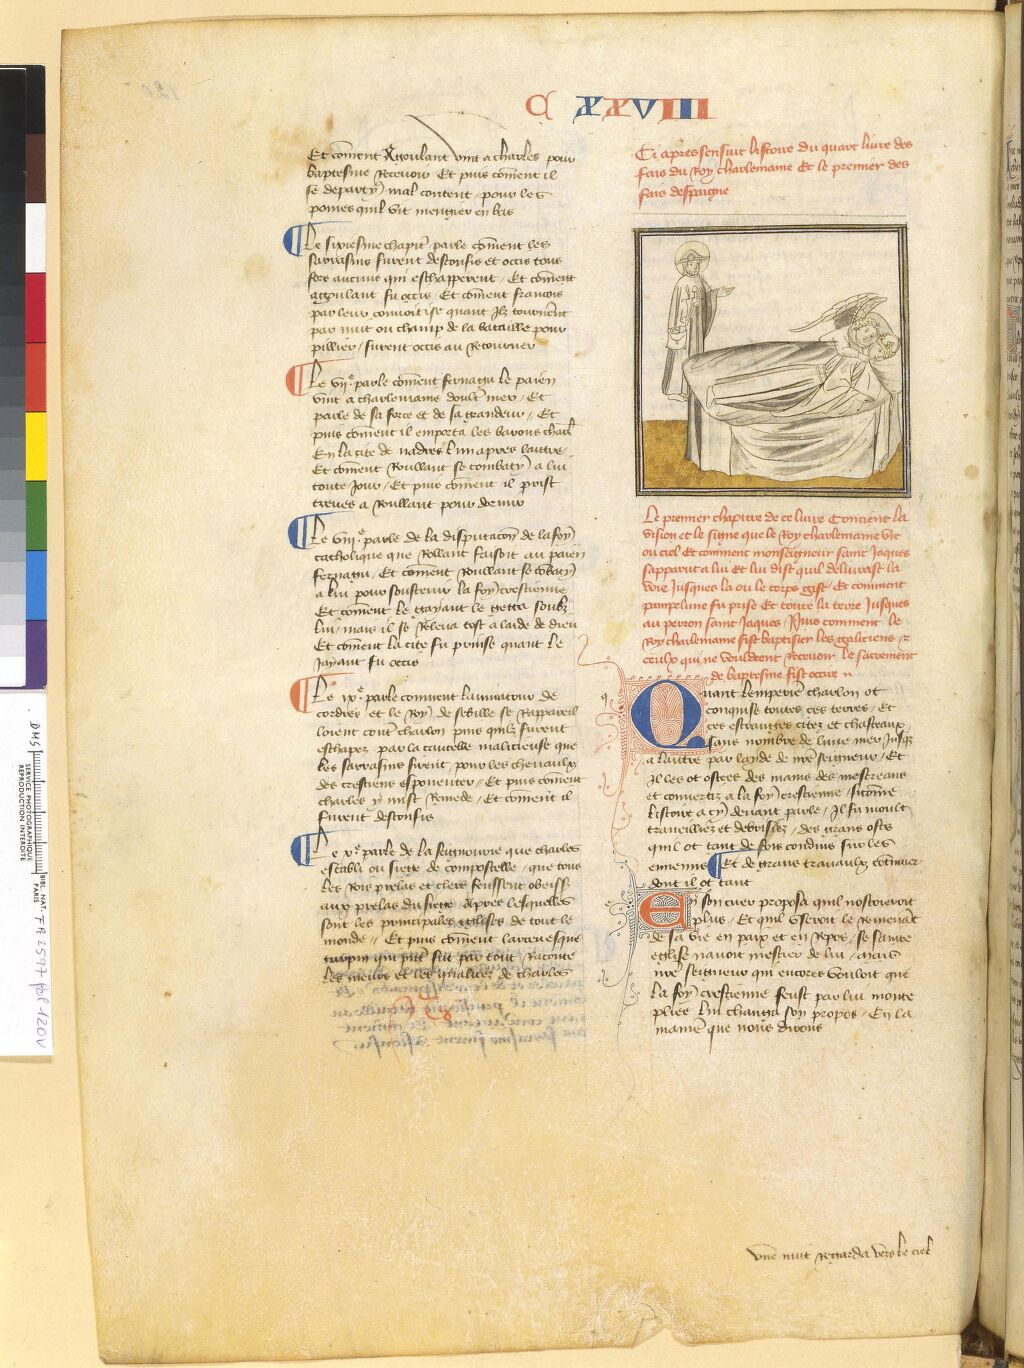 C XXVIII
Et coment Agoulant vint a charles pour
baptesme recevoir Et puis coment il
se departy mal content pour les
poures quil vit mengier en bas
Le sixiesme chapitre parle coment les
sarrasins furent desconfis et occis tous
fors aucuns qui eschapperent Et coment
agoulant fu occis Et coment francois
par leur convoitise quant ilz tournerent
par nuit ou champ de la bataille pour
pillier furent occis au retourner
Le vii.e parle coment fernagu le paien
vint a charlemaine doultre mer Et
parle de sa force et de sa grandeur Et
puis coment il emporta les barons charl
En la cite de nadres lun apres lautre
Et coment Roullant se combaty a lui
toute jour Et puis coment il prist
treves a Roullant pour dormir
Le viii.e parle de la disputacon de la foy
catholique que Rollant faisoit au paien
fernagu Et coment Roullant se cobaty
a lui pour soustenir la foy crestienne
Et coment le gayant le getta soubz
lui mais il se releva tost a laide de dieu
Et coment la cite fu prinse quant le
jayant fu occis
Le ix.e parle coment laumatour de
cordres et le Roy de sebille se rappareil
loient contre charlon puis quilz furent
eschapez par la cautelle malicieuse que
les sarrasins firent pour les chevaulx
des crestiens espouenter Et puis coment
charles y mist remede Et coment il
furent desconfis
Le x.e parle de la seignourie que charles
establi ou siege de compostelle que tous
les Rois prelas et clers feussent obeiss
aux prelas du siege Apres lesquelles
sont les principales eglises de tout le
monde Et puis coment larcevesque
turpin qui pretre fut par tout raconte
les meurs et les qualitez de charles
Ci apres sensuit listoire du quart livre des
fais du Roy charlemaine Et le premier des
fais despaigne
Le premier chapitre de ce livre contient la
vision et le signe que le Roy charlemaine vit
ou ciel Et comment monseigneur saint Jaques
sapparut a lui et lui dist quil delivrast la
voie jusques la ou le corps gist Et comment
pampelune fu prise Et toute la terre jusques
au perron saint Jaques Puis comment le
Roy charlemaine fist baptisier les galiciens
ceulx qui ne vouldrent recevoir le sacrement
de baptesme fist occire
Quant lempere charlon ot
conquise toutes ces terres Et
ces estranges citez et chasteaux
sans nombre de lune mer jusqz
a lautre par layde de nre seigneur Et
Il les ot ostees des mains des mescreans
et convertiz a la foy crestienne si come
listoire a cy devant parle Il fu moult
traveilliez et debrisiez des grans ostz
quil ot tant de fois conduis sur les
ennemis Et de grans travaulx
dont il ot tant
En son cuer proposa quil nostoieroit
plus Et quil useroit le remenat
de sa vie en paix et en repos se sainte
eglise navoit mestier de lui mais
nre seigneur qui encores vouloit que
la foy crestienne feust par lui monte
pliee lui changa son propos En la
maniere que nous dirons
vne nuit regarda vers le ciel
DMS
SERVICE PHOTOGRAPHIQUE
REPRODUCTION INTERDITE
BIBL. NAT.
PARIS
FR 2597 fol 120v